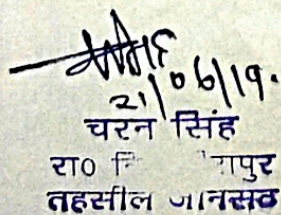 21/06/19.
चरन सिंह
रा०
तहसील जानसठ